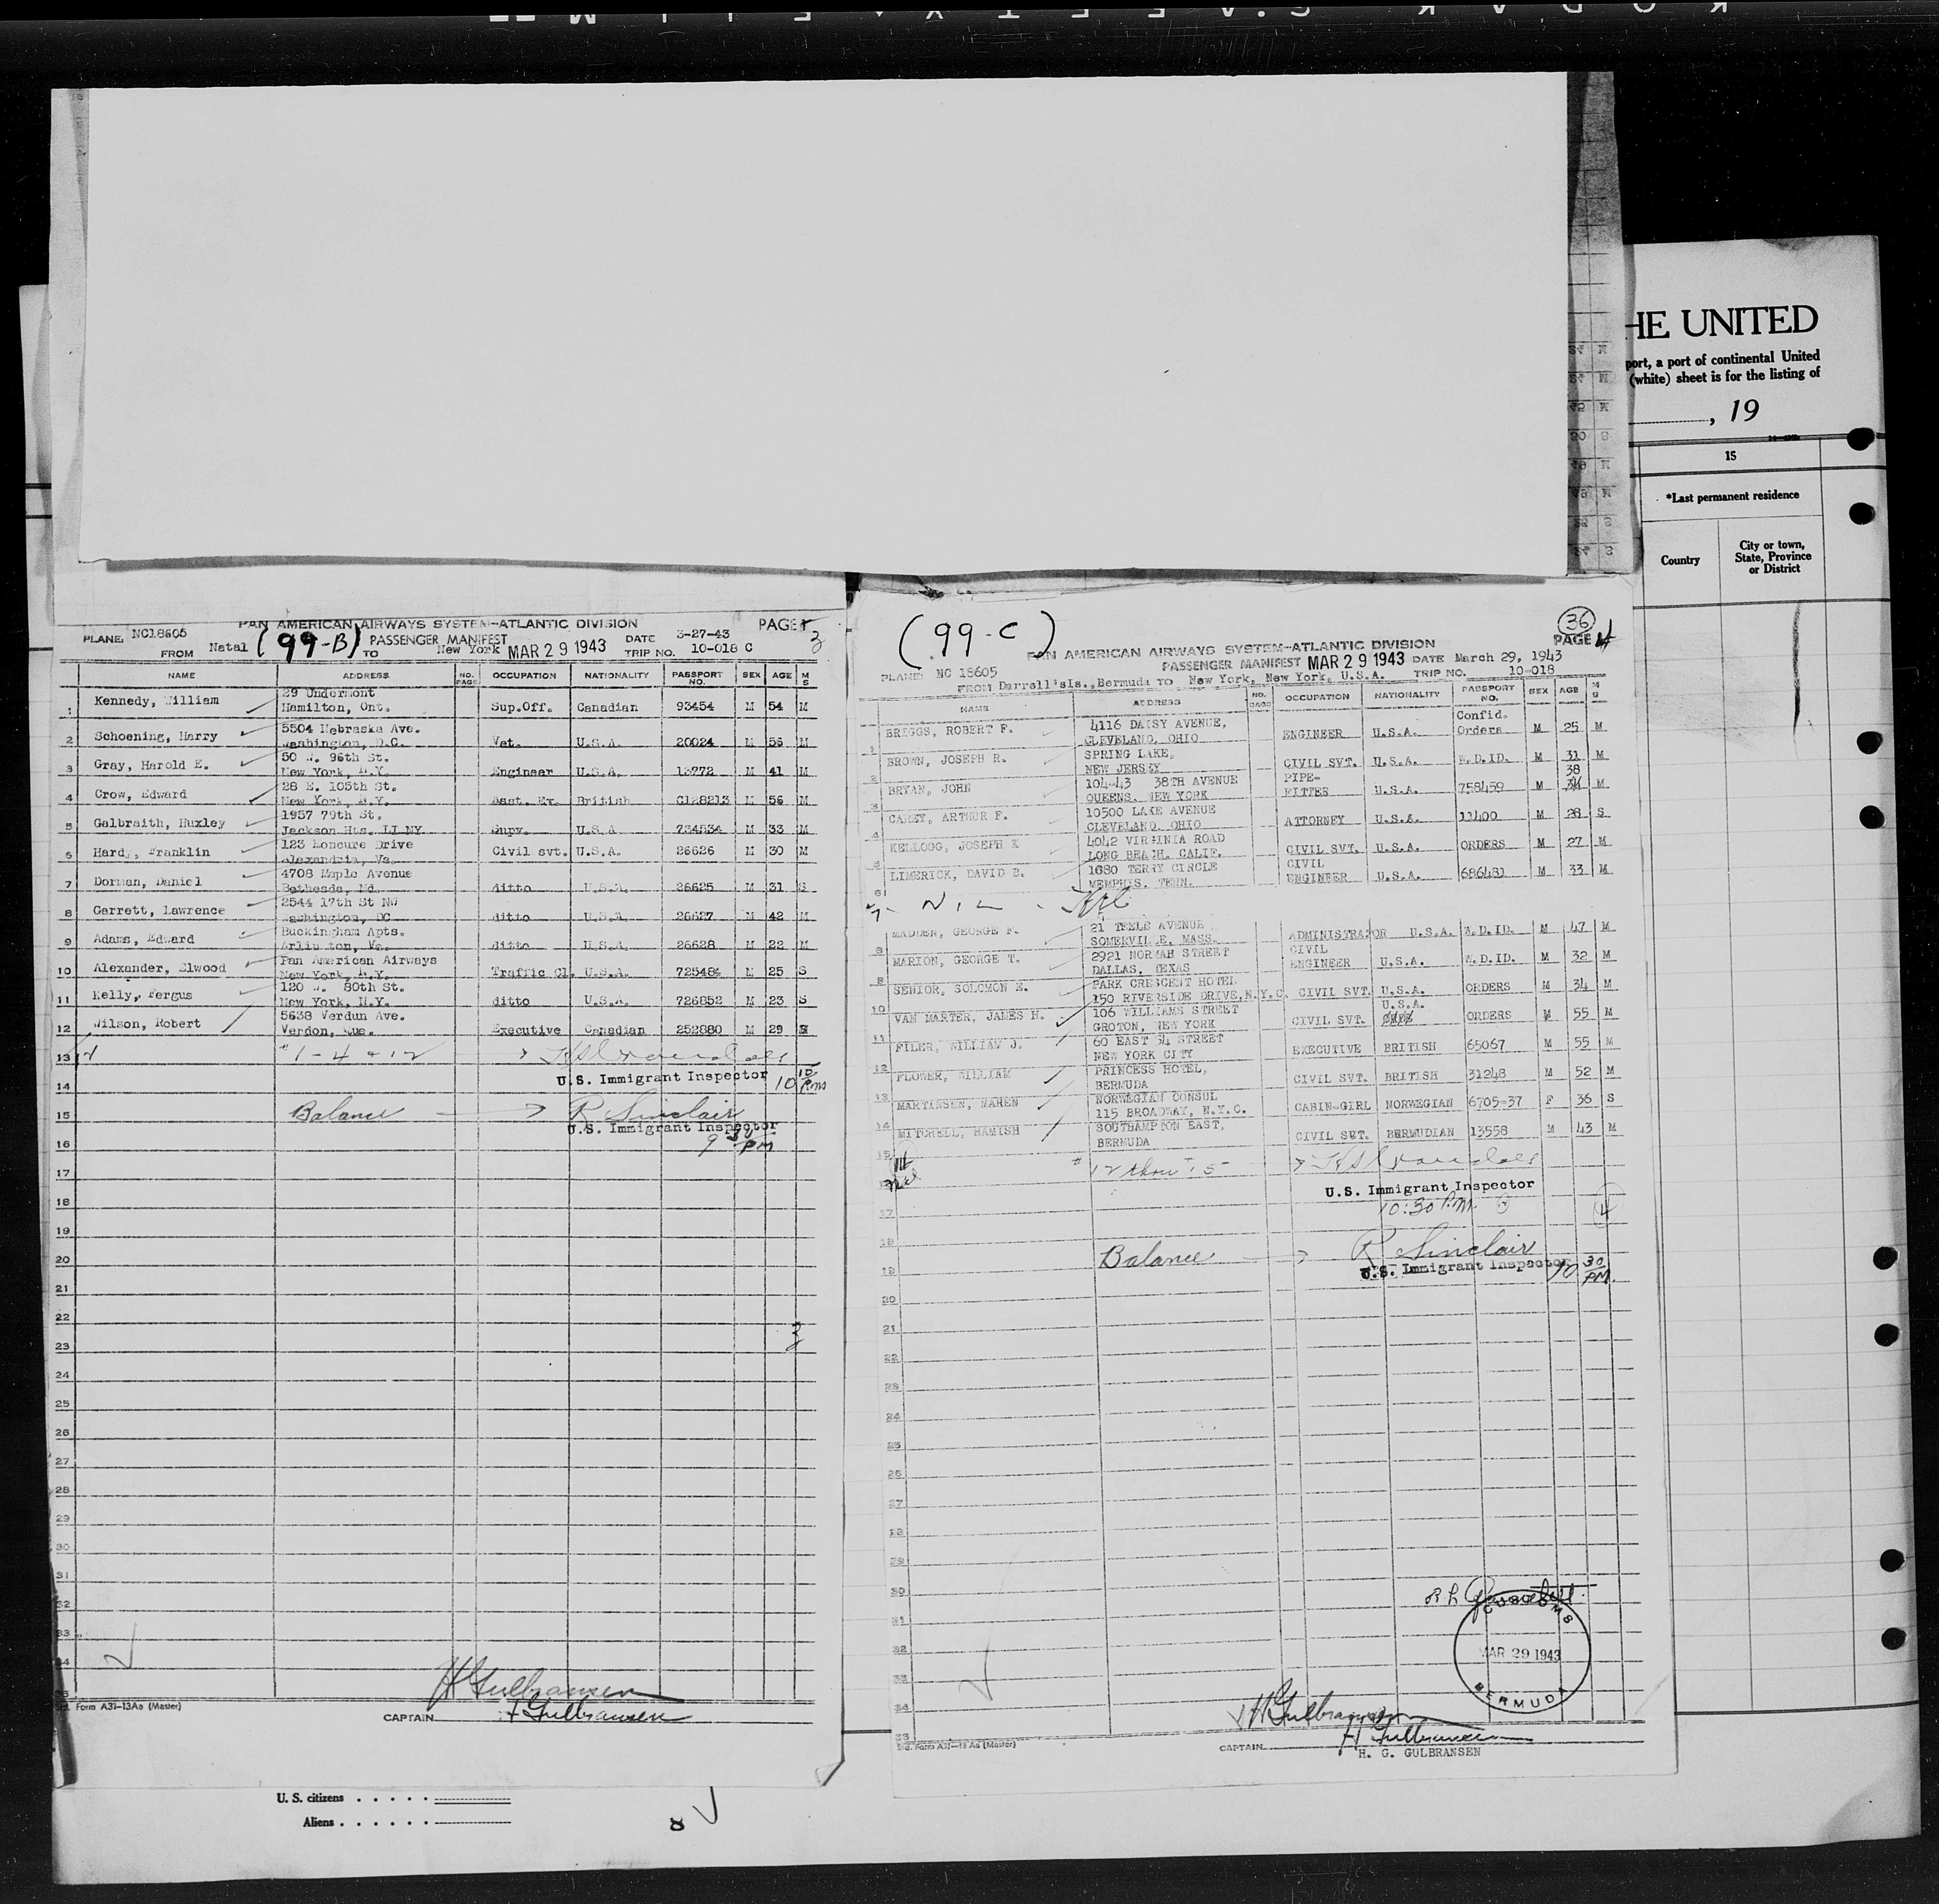 HE UNITED
port, a port of continental United
(white) sheet is for the listing of
, 19
15
*Last permanent residence
Country
City or town, State, Province or District
PAN AMERICAN AIRWAYS SYSTEM-ATLANTIC DIVISION PAGE 3
PLANE: NC18605 (99-B) PASSENGER MANIFEST DATE 3-27-43
FROM Natal TO New York MAR 29 1943 TRIP NO. 10-018 C
NAME ADDRESS NO. PAGS. OCCUPATION NATIONALITY PASSPORT NO. SEX AGE M S
1 Kennedy, William 29 Undermont Hamilton, Ont. Sup.Off. Canadian 93454 M 54 M
2 Schoening, Harry 5504 Nebraska Ave. Washington, D.C. Vet. U.S.A. 20024 M 56 M
3 Gray, Harold E. 50 W. 96th St. New York, N.Y. Engineer U.S.A. 13772 M 41 M
4 Crow, Edward 28 E. 105th St. New York, N.Y. Bast. Ex. British C128213 M 56 M
5 Galbraith, Huxley 1957 79th St. Jackson Hts. LI NY Supv. U.S.A 734534 M 33 M
6 Hardy, Franklin 123 Moncure Drive Alexandria, Va. Civil svt. U.S.A. 26626 M 30 M
7 Dorman, Daniel 4708 Maple Avenue Bethesda, Md. ditto U.S.A. 26625 M 31 S
8 Garrett, Lawrence 2544 17th St NW Washington, DC ditto U.S.A. 26627 M 42 M
9 Adams, Edward Buckingham Apts. Arlington, Va. ditto U.S.A. 26628 M 22 M
10 Alexander, Elwood Pan American Airways New York, N.Y. Traffic Cl. U.S.A. 725484 M 25 S
11 Kelly, Fergus 120 W. 80th St. New York, N.Y. ditto U.S.A. 726852 M 23 S
12 Wilson, Robert 5638 Verdun Ave. Verdon, Que. Executive Canadian 252880 M 29
13 #1-4 + 12
14 U.S. Immigrant Inspector 10 15 P.m
15 Balance → R Sinclair
U.S. Immigrant Inspector
16 9 30 PM
17
18
19
20
21
22
23 3
24
25
26
27
28
29
30
31
32
33
34
35
Std. Form A31-13Aa (Master)
H Gulbransen
CAPTAIN H Gulbransen
U. S. citizens
Aliens
8
(99-C) 36
PAN AMERICAN AIRWAYS SYSTEM-ATLANTIC DIVISION PAGE 4
PASSENGER MANIFEST MAR 29 1943 DATE March 29, 1943
PLANE: NC 18605
FROM Darrell'sIs., Bermuda TO New York, New York, U.S.A. TRIP NO. 10-018
NAME ADDRESS NO. PAGS OCCUPATION NATIONALITY PASSPORT NO. SEX AGE M S
1 BRIGGS, ROBERT F. 4116 DAISY AVENUE, CLEVELAND, OHIO ENGINEER U.S.A. Confid. Orders M 25 M
2 BROWN, JOSEPH R. SPRING LAKE, NEW JERSEY CIVIL SVT. U.S.A. W.D.ID. M 31 M
3 BRYAN, JOHN 104-43 38TH AVENUE QUEENS, NEW YORK PIPE-FITTER U.S.A. 758459 M 38 M
4 CAREY, ARTHUR F. 10500 LAKE AVENUE CLEVELAND, OHIO ATTORNEY U.S.A. 11400 M 28 S
5 KELLOGG, JOSEPH K 4042 VIRGINIA ROAD LONG BEACH, CALIF. CIVIL SVT. U.S.A. ORDERS M 27 M
6 LIMERICK, DAVID B. 1680 TERRY CIRCLE MEMPHIS, TENN. CIVIL ENGINEER U.S.A. 686481 M 33 M
7 - NIL -
8 MADDEN, GEORGE F. 21 TEELE AVENUE SOMERVILLE, MASS. ADMINISTRATOR U.S.A. W.D.ID. M 47 M
9 MARION, GEORGE T. 2921 NORMAN STREET DALLAS, TEXAS CIVIL ENGINEER U.S.A. W.D.ID. M 32 M
10 SENIOR, SOLOMON E. PARK CRESCENT HOTEL 150 RIVERSIDE DRIVE, N.Y.C. CIVIL SVT. U.S.A. ORDERS M 34 M
11 VAN MARTER, JAMES H. 106 WILLIAMS STREET GROTON, NEW YORK CIVIL SVT. U.S.A. ORDERS M 55 M
12 FILER, WILLIAM J. 60 EAST 54 STREET NEW YORK CITY EXECUTIVE BRITISH 65067 M 55 M
13 FLOWER, WILLIAM PRINCESS HOTEL, BERMUDA CIVIL SVT. BRITISH 31248 M 52 M
14 MARTINSEN, MAREN NORWEGIAN CONSUL 115 BROADWAY, N.Y.C. CABIN-GIRL NORWEGIAN 6705-37 F 36 S
15 MITCHELL, HAMISH SOUTHAMPTON EAST, BERMUDA CIVIL SVT. BERMUDIAN 13558 M 43 M
# 12 thru 15
U.S. Immigrant Inspector
17 10:30 P.M. 4
18
19 Balance → R Sinclair
U.S. Immigrant Inspector 10 30 PM.
20
21
22
23
24
25
26
27
28
29
30
31
32
33
34
35
CUSTOMS
MAR 29 1943
BERMUDA
H Gulbransen
Std. Form A31-13 Aa (Master)
CAPTAIN H Gulbransen
H. G. GULBRANSEN